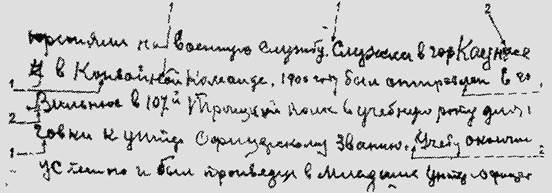 1 1 2
на военную службу. Служил в гор Каунасе
в Конвойной Команде. год был отправлен в го.
1
Вильнюс в 107й Троицкий полк в учебную роту для
2
товки к унтер офицерскому званию. Учебу окончил
1 2
успешно и был произведен в младшие унтер офицер